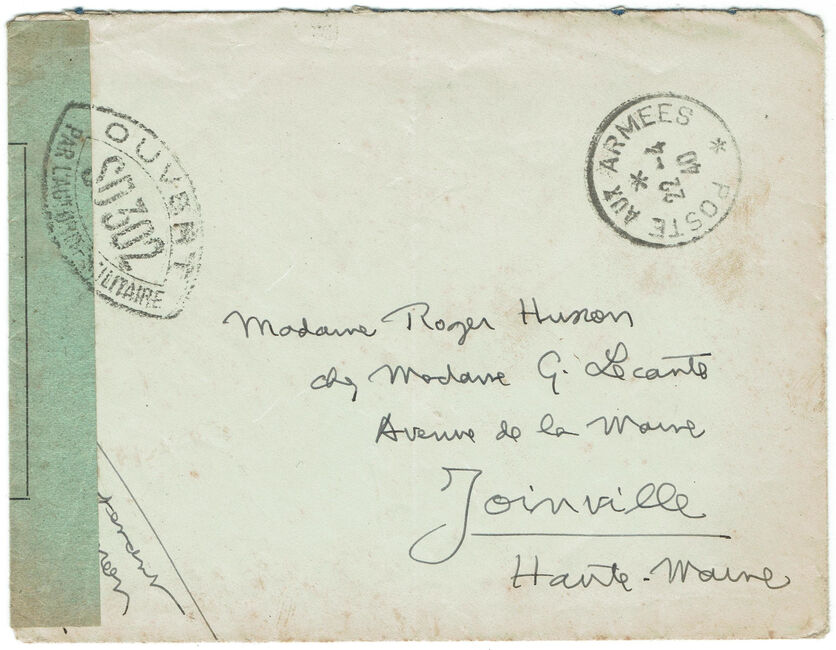 OUVERT
PAR L'AUTORITÉ MILITAIRE
SD302
POSTE AUX ARMEES
4-1
40
Madame Roger Husson
chez Madame G. Lecante
Avenue de la Marne
Joinville
Haute-Marne